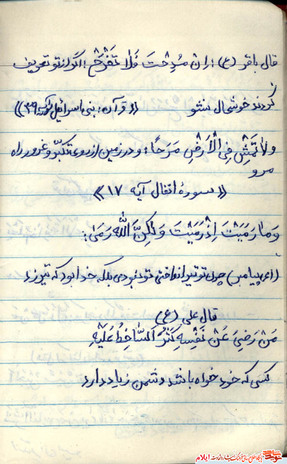 قال باقر (ع): ان مُدِحْتَ فَلا تَفْرَحْ: اگر از تو تعریف
کردند خوشحال مشو «قرآن: بنی اسرائیل آیه ۳۹»
ولا تَمْشِ فِی الْاَرْضِ مَرَحاً: و در زمین از روی تکبّر و غرور راه
مرو
«سورهٔ انفال آیه ۱۷»
وَمٰا رَمَیْتَ اِذْ رَمَیْتَ وَلٰکِنَّ اللّٰهَ رَمیٰ:
(ای پیامبر) چون تو تیر انداختی تو نبودی بلکه خدا بود که تیر زد
قال علی (ع)
مَنْ رَضِیَ عَنْ نَفْسِهِ کَثُرَ السّٰاخِطُ عَلَیْهِ
کسی که خودخواه باشد دشمن زیاد دارد
ایلام